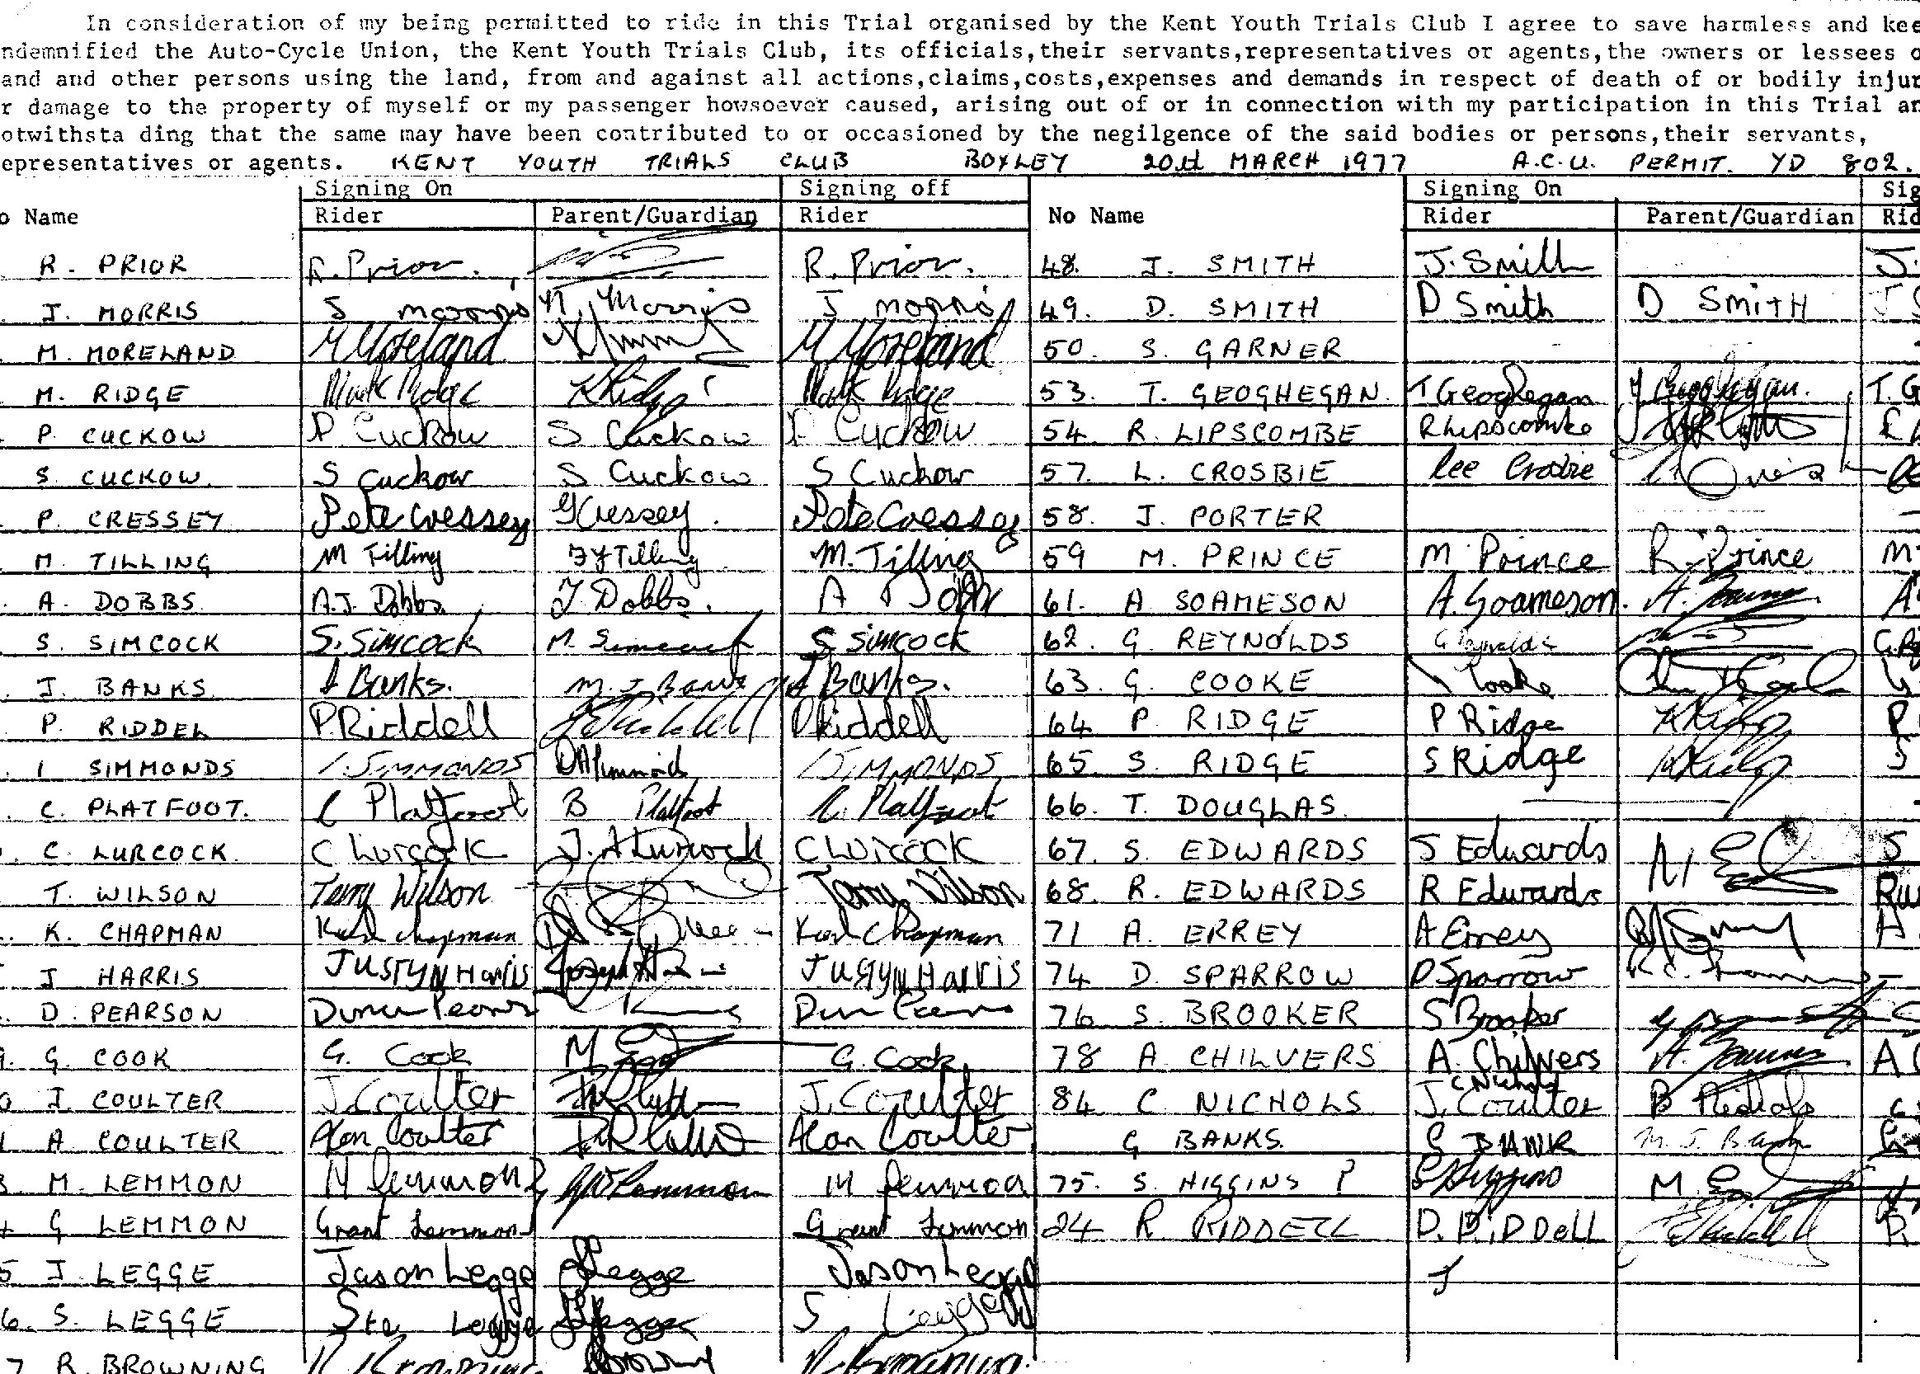 In consideration of my being permitted to ride in this Trial organised by the Kent Youth Trials Club I agree to save harmless and kee
ndemnified the Auto-Cycle Union, the Kent Youth Trials Club, its officials,their servants,representatives or agents,the owners or lessees o
and and other persons using the land, from and against all actions,claims,costs,expenses and demands in respect of death of or bodily injur
r damage to the property of myself or my passenger howsoever caused, arising out of or in connection with my participation in this Trial an
otwithsta ding that the same may have been contributed to or occasioned by the negilgence of the said bodies or persons,their servants,
epresentatives or agents. KENT YOUTH TRIALS CLUB BOXLEY 20th MARCH 1977 A.C.U. PERMIT. YD 802.
Signing On Signing off Signing On Sig
o Name Rider Parent/Guardian Rider No Name Rider Parent/Guardian Rid
R. PRIOR R. Prior. R. Prior. 48. J. SMITH J. Smith J.
J. MORRIS J morris N. Morris J morris 49. D. SMITH D Smith D SMITH
M. MORELAND M Moreland M Moreland 50. S. GARNER
M. RIDGE Mark Ridge K Ridge Mark Ridge 53. T. GEOGHEGAN. T Geoghegan T. Geoghegan. T. G
P. CUCKOW P Cuckow S Cuckow P Cuckow 54. R. LIPSCOMBE R Lipscombe
S. CUCKOW. S Cuckow S Cuckow S Cuckow 57. L. CROSBIE Lee Crosbie
P. CRESSEY Pete Cressey Cressey. Pete Cressey 58. J. PORTER
M. TILLING M Tilling Tilling M. Tilling 59 M. PRINCE M Prince R. Prince M
A. DOBBS A.J. Dobbs J. Dobbs. A Dobbs 61. A SOAMESON A. Soameson.
S. SIMCOCK S. Simcock M. Simcock S Simcock 62. G. REYNOLDS G Reynolds
J. BANKS J Banks. M J Banks J Banks. 63. G. COOKE Cooke
P. RIDDEL P Riddell Riddell P Riddell 64 P. RIDGE P Ridge K Ridge P
I SIMMONDS I. SIMMONDS Simmonds I SIMMONDS 65. S. RIDGE S Ridge K Ridge S
C. PLATFOOT. C Platfoot B Platfoot C. Platfoot 66. T. DOUGLAS.
C. LURCOCK. C Lurcock J. A Lurcock C Lurcock 67. S. EDWARDS S Edwards S
T. WILSON Terry Wilson Terry Wilson 68. R. EDWARDS R Edwards
K. CHAPMAN Chapman Chapman 71 A. ERREY A Errey
J HARRIS JUSTYN Harris JUSTYN Harris 74 D. SPARROW D Sparrow
D. PEARSON Pearson 76 S. BROOKER S Brooker
G. COOK G. Cook G. Cook 78 A. CHILVERS A. Chilvers A C
J. COULTER J. Coulter J. Coulter 84 C NICHOLS C Nichols J. Coulter B Nichols
A COULTER Alan Coulter Alan Coulter G BANKS. G BANK M. J. Banks
M. LEMMON M Lemmon Lemmon M Lemmon 75. S. HIGGINS ? S Higgins
G LEMMON Grant Lemmon Grant Lemmon 24 R RIDDELL D. RiDDell Riddell
5 J. LEGGE Jason Legge Legge Jason Legge
6. S. LEGGE Ste Legge Legge S Legge
7 R. BROWNING R Browning Browning R Browning